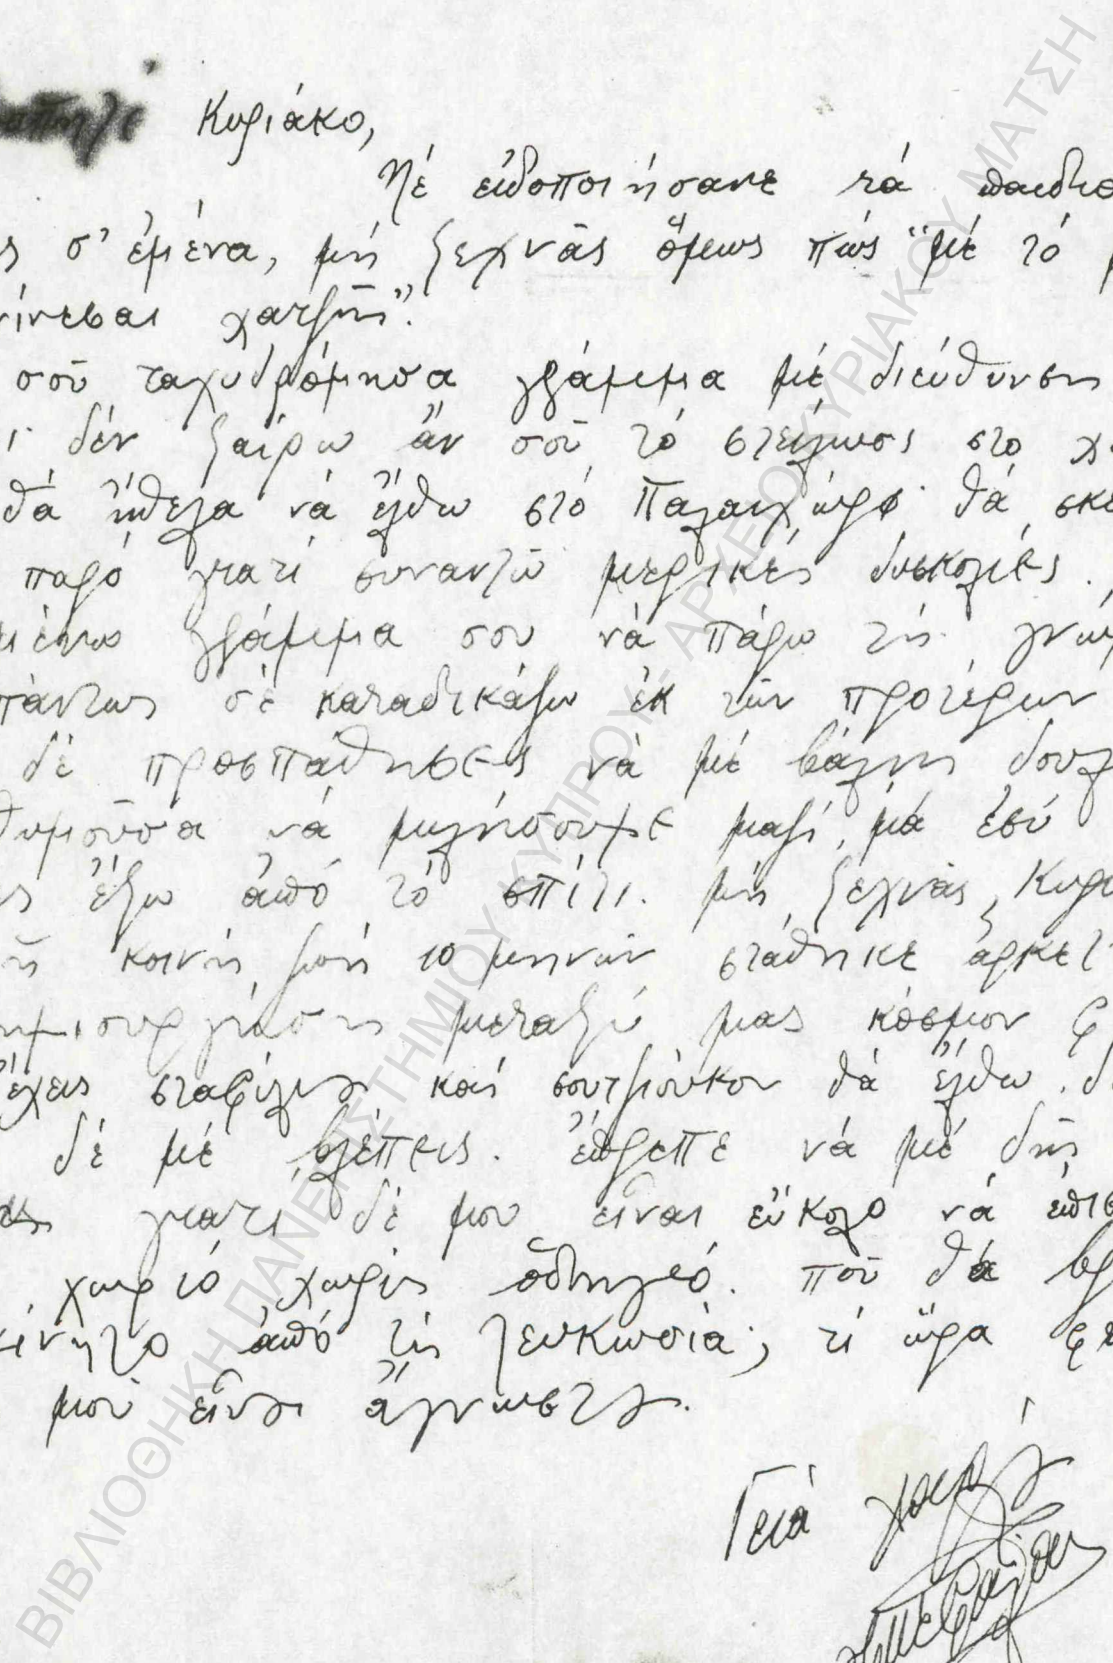 Κυριάκο,
Μέ εἰδοποιήσανε τά παιδιά
σ' ἐμένα, μή ξεχνᾶς ὅμως πώς "μέ τό
γίνεσαι χατζῆς".
σοῦ ταχυδρόμησα γράμμα μέ διεύθυνση
δέν ξαίρω ἄν σοῦ τό στείλωσι στο
θά ἤθελα νά ἔλθω στό Παλαιχώρι θά
παρό γιατί συναντῶ μερικές δυσκολίες.
γράμμα σου νά πάρω τή
πάντως σέ καταδικάζω ἐκ τῶν προτέρων
δέ προσπάθησες νά μέ βάλης
νά μιλήσουμε μαζί, μά ἐσύ
ἔξω ἀπό τό σπίτι. μή ξεχνᾶς
ἡ κοινή ζωή 10 μηνῶν στάθηκε
μεταξύ μας κόσμον
ἔχεις σταφύλια καί σουτζιούκον θά ἔλθω.
δέ μέ βλέπεις. ἔπρεπε νά μέ δῆς
γιατί δέ μου εἶναι εὔκολο νά
χωριό χωρίς ὁδηγό. ποῦ θά
ἀπό τή Λευκωσία; τί ὥρα
μοῦ εἶναι ἄγνωστα.
Γειά χαρά
ΒΙΒΛΙΟΘΗΚΗ ΠΑΝΕΠΙΣΤΗΜΙΟΥ ΚΥΠΡΟΥ - ΑΡΧΕΙΟ ΚΥΡΙΑΚΟΥ ΜΑΤΣΗ